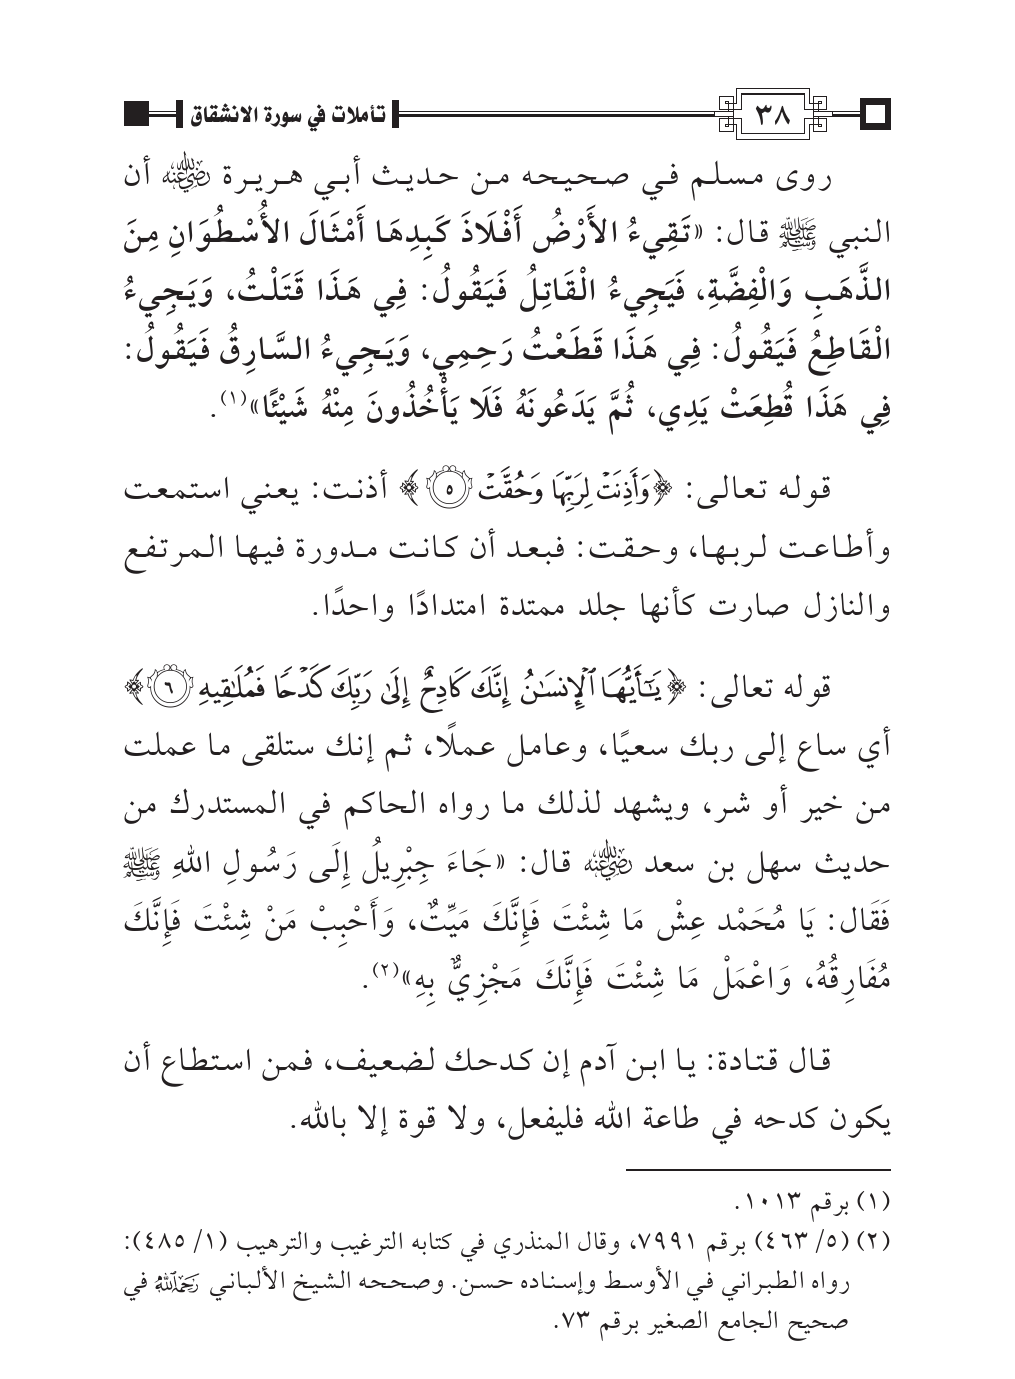 ٣٨ تأملات في سورة الانشقاق
روى مسلم في صحيحه من حديث أبي هريرة رضي الله عنه أن
النبي ﷺ قال: «تَقِيءُ الأَرْضُ أَفْلَاذَ كَبِدِهَا أَمْثَالَ الأُسْطُوَانِ مِنَ
الذَّهَبِ وَالْفِضَّةِ، فَيَجِيءُ الْقَاتِلُ فَيَقُولُ: فِي هَذَا قَتَلْتُ، وَيَجِيءُ
الْقَاطِعُ فَيَقُولُ: فِي هَذَا قَطَعْتُ رَحِمِي، وَيَجِيءُ السَّارِقُ فَيَقُولُ:
فِي هَذَا قُطِعَتْ يَدِي، ثُمَّ يَدَعُونَهُ فَلَا يَأْخُذُونَ مِنْهُ شَيْئًا»(١).
قوله تعالى: ﴿وَأَذِنَتۡ لِرَبِّهَا وَحُقَّتۡ ٥﴾ أذنت: يعني استمعت
وأطاعت لربها، وحقت: فبعد أن كانت مدورة فيها المرتفع
والنازل صارت كأنها جلد ممتدة امتدادًا واحدًا.
قوله تعالى: ﴿يَٰٓأَيُّهَا ٱلۡإِنسَٰنُ إِنَّكَ كَادِحٌ إِلَىٰ رَبِّكَ كَدۡحٗا فَمُلَٰقِيهِ ٦﴾
أي ساع إلى ربك سعيًا، وعامل عملًا، ثم إنك ستلقى ما عملت
من خير أو شر، ويشهد لذلك ما رواه الحاكم في المستدرك من
حديث سهل بن سعد رضي الله عنه قال: «جَاءَ جِبْرِيلُ إِلَى رَسُولِ اللهِ ﷺ
فَقَال: يَا مُحَمْد عِشْ مَا شِئْتَ فَإِنَّكَ مَيِّتٌ، وَأَحْبِبْ مَنْ شِئْتَ فَإِنَّكَ
مُفَارِقُهُ، وَاعْمَلْ مَا شِئْتَ فَإِنَّكَ مَجْزِيٌّ بِهِ»(٢).
قال قتادة: يا ابن آدم إن كدحك لضعيف، فمن استطاع أن
يكون كدحه في طاعة الله فليفعل، ولا قوة إلا بالله.
(١) برقم ١٠١٣.
(٢) (٥/ ٤٦٣) برقم ٧٩٩١، وقال المنذري في كتابه الترغيب والترهيب (١/ ٤٨٥):
رواه الطبراني في الأوسط وإسناده حسن. وصححه الشيخ الألباني رحمه الله في
صحيح الجامع الصغير برقم ٧٣.